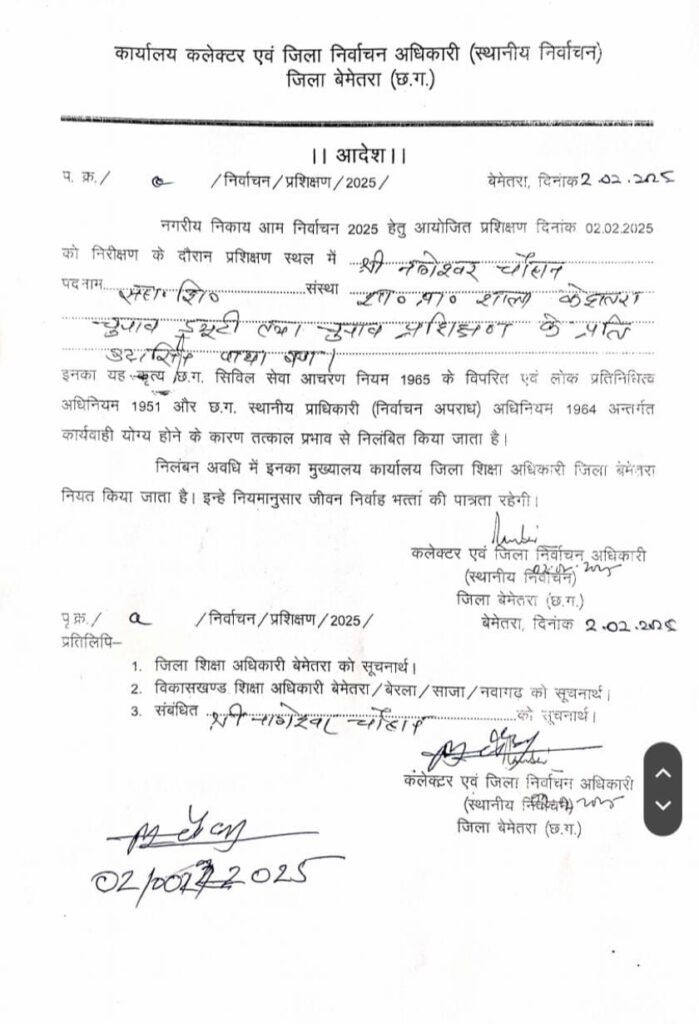 कार्यालय कलेक्टर एवं जिला निर्वाचन अधिकारी (स्थानीय निर्वाचन)
जिला बेमेतरा (छ.ग.)
।। आदेश ।।
प. क्र./ /निर्वाचन/प्रशिक्षण/2025/ बेमेतरा, दिनांक 2.02.2025
नगरीय निकाय आम निर्वाचन 2025 हेतु आयोजित प्रशिक्षण दिनांक 02.02.2025
को निरीक्षण के दौरान प्रशिक्षण स्थल में श्री नागेश्वर चौहान
पदनाम सहा. शि० संस्था शा० प्रा० शाला
चुनाव ड्यूटी तथा चुनाव प्रशिक्षण के प्रति
पाया गया।
इनका यह कृत्य छ.ग. सिविल सेवा आचरण नियम 1965 के विपरित एवं लोक प्रतिनिधित्व
अधिनियम 1951 और छ.ग. स्थानीय प्राधिकारी (निर्वाचन अपराध) अधिनियम 1964 अन्तर्गत
कार्यवाही योग्य होने के कारण तत्काल प्रभाव से निलंबित किया जाता है।
निलंबन अवधि में इनका मुख्यालय कार्यालय जिला शिक्षा अधिकारी जिला बेमेतरा
नियत किया जाता है। इन्हे नियमानुसार जीवन निर्वाह भत्तां की पात्रता रहेगी।
कलेक्टर एवं जिला निर्वाचन अधिकारी
(स्थानीय निर्वाचन)
जिला बेमेतरा (छ.ग.)
पृ.क्र./ /निर्वाचन/प्रशिक्षण/2025/ बेमेतरा, दिनांक 2.02.2025
प्रतिलिपि–
1. जिला शिक्षा अधिकारी बेमेतरा को सूचनार्थ।
2. विकासखण्ड शिक्षा अधिकारी बेमेतरा/बेरला/साजा/नवागढ को सूचनार्थ।
3. संबंधित श्री नागेश्वर चौहान को सूचनार्थ।
कलेक्टर एवं जिला निर्वाचन अधिकारी
(स्थानीय निर्वाचन)
जिला बेमेतरा (छ.ग.)